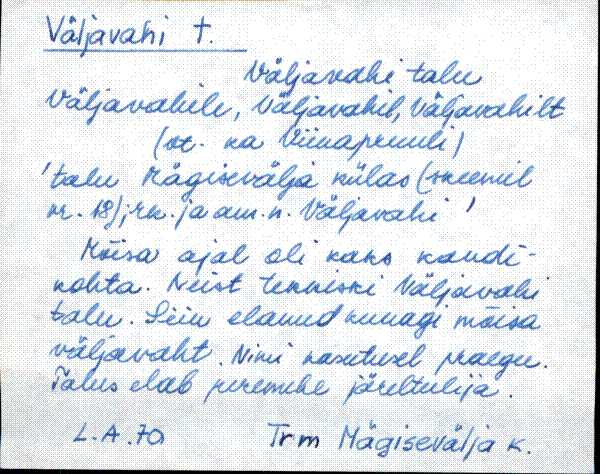 Väljavahi t.
Väljavahi talu
Väljavahile, Väljavahil, Väljavahilt
(vt. ka Viinapruuli)
'talu Mägisevälja külas (skeemil
nr. 18); rk. ja am. n. Väljavahi'
Mõisa ajal oli kaks kandi-
kohta. Neist tekkiski Väljavahi
talu. Siin elanud kunagi mõisa
väljavaht. Nimi kasutusel praegu.
Talus elab peremehe järeltulija.
L.A.70 Trm Mägisevälja k.